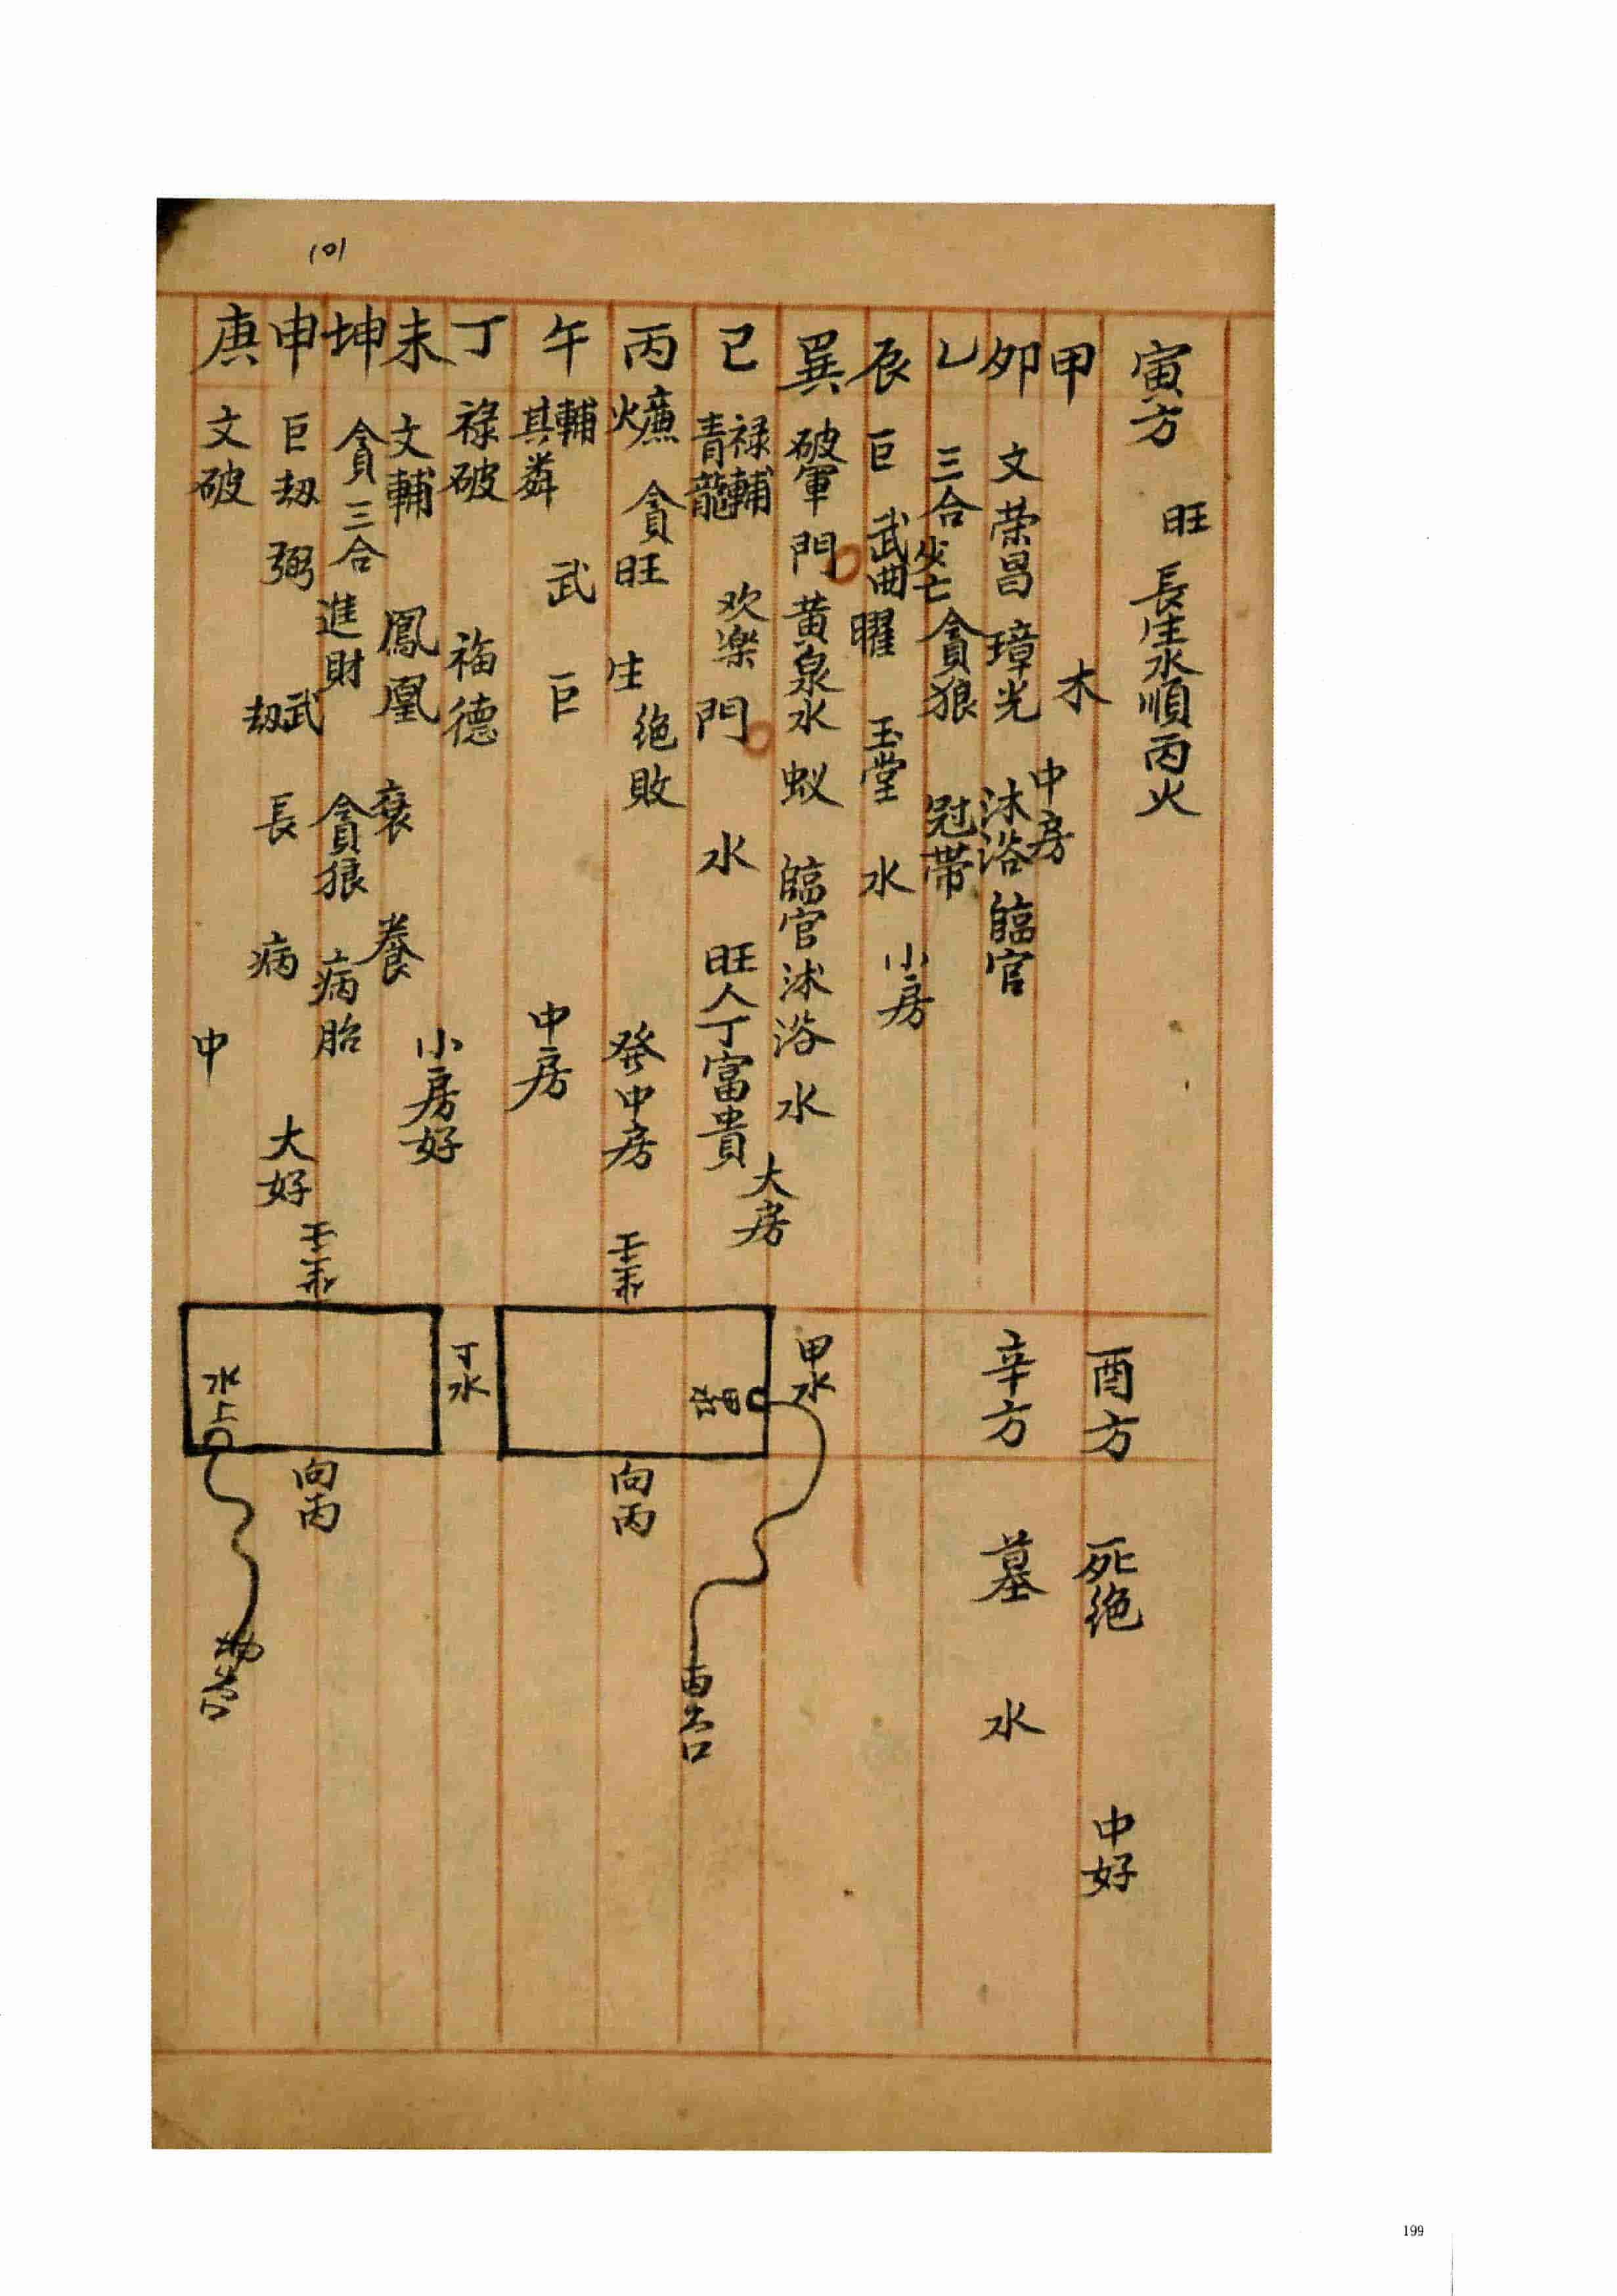 101
寅方 旺 長生水順丙火
甲 木 中房
卯 文 荣昌 璋光 沐浴 臨官
乙 三合 少亡 貪狼 冠带
辰 巨 武曲 曜 玉堂 水 小房
巽 破軍 門 黄泉水 蚁 臨官 沐浴 水
巳 禄輔 青龍 欢楽 門 水 旺人丁富貴 大房
丙 火 廉 貪 旺 生 绝 敗 發中房
午 輔 其粦 武 巨 中房
丁 禄破 福德
未 文輔 鳳凰 衰 養 小房好
坤 貪 三合 進財 貪狼 病 胎
申 巨劫 弼 武 劫 長 病 大好
庚 文破 中
酉方 死绝 中好
辛方 墓 水
甲水
向丙
丁水
水上
向丙
199